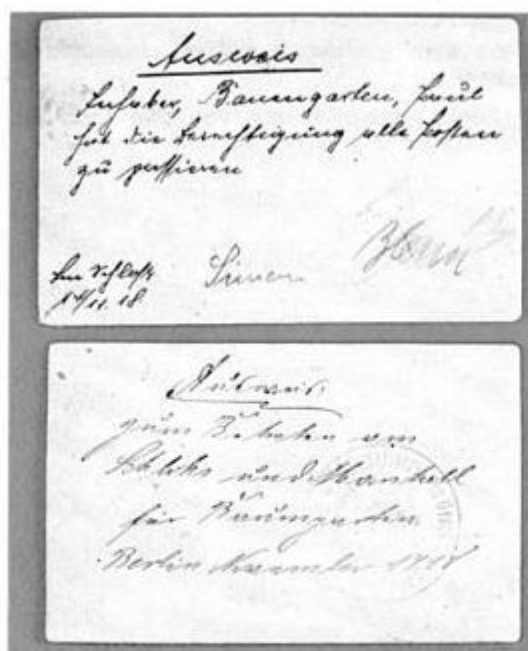 Ausweis
Inhaber, Baumgarten, Paul
hat die Berechtigung alle Posten
zu passieren
Im Schloß
Ausweis
zum Betreten von
Schloss und Marstall
für Baumgarten
Berlin November 1918